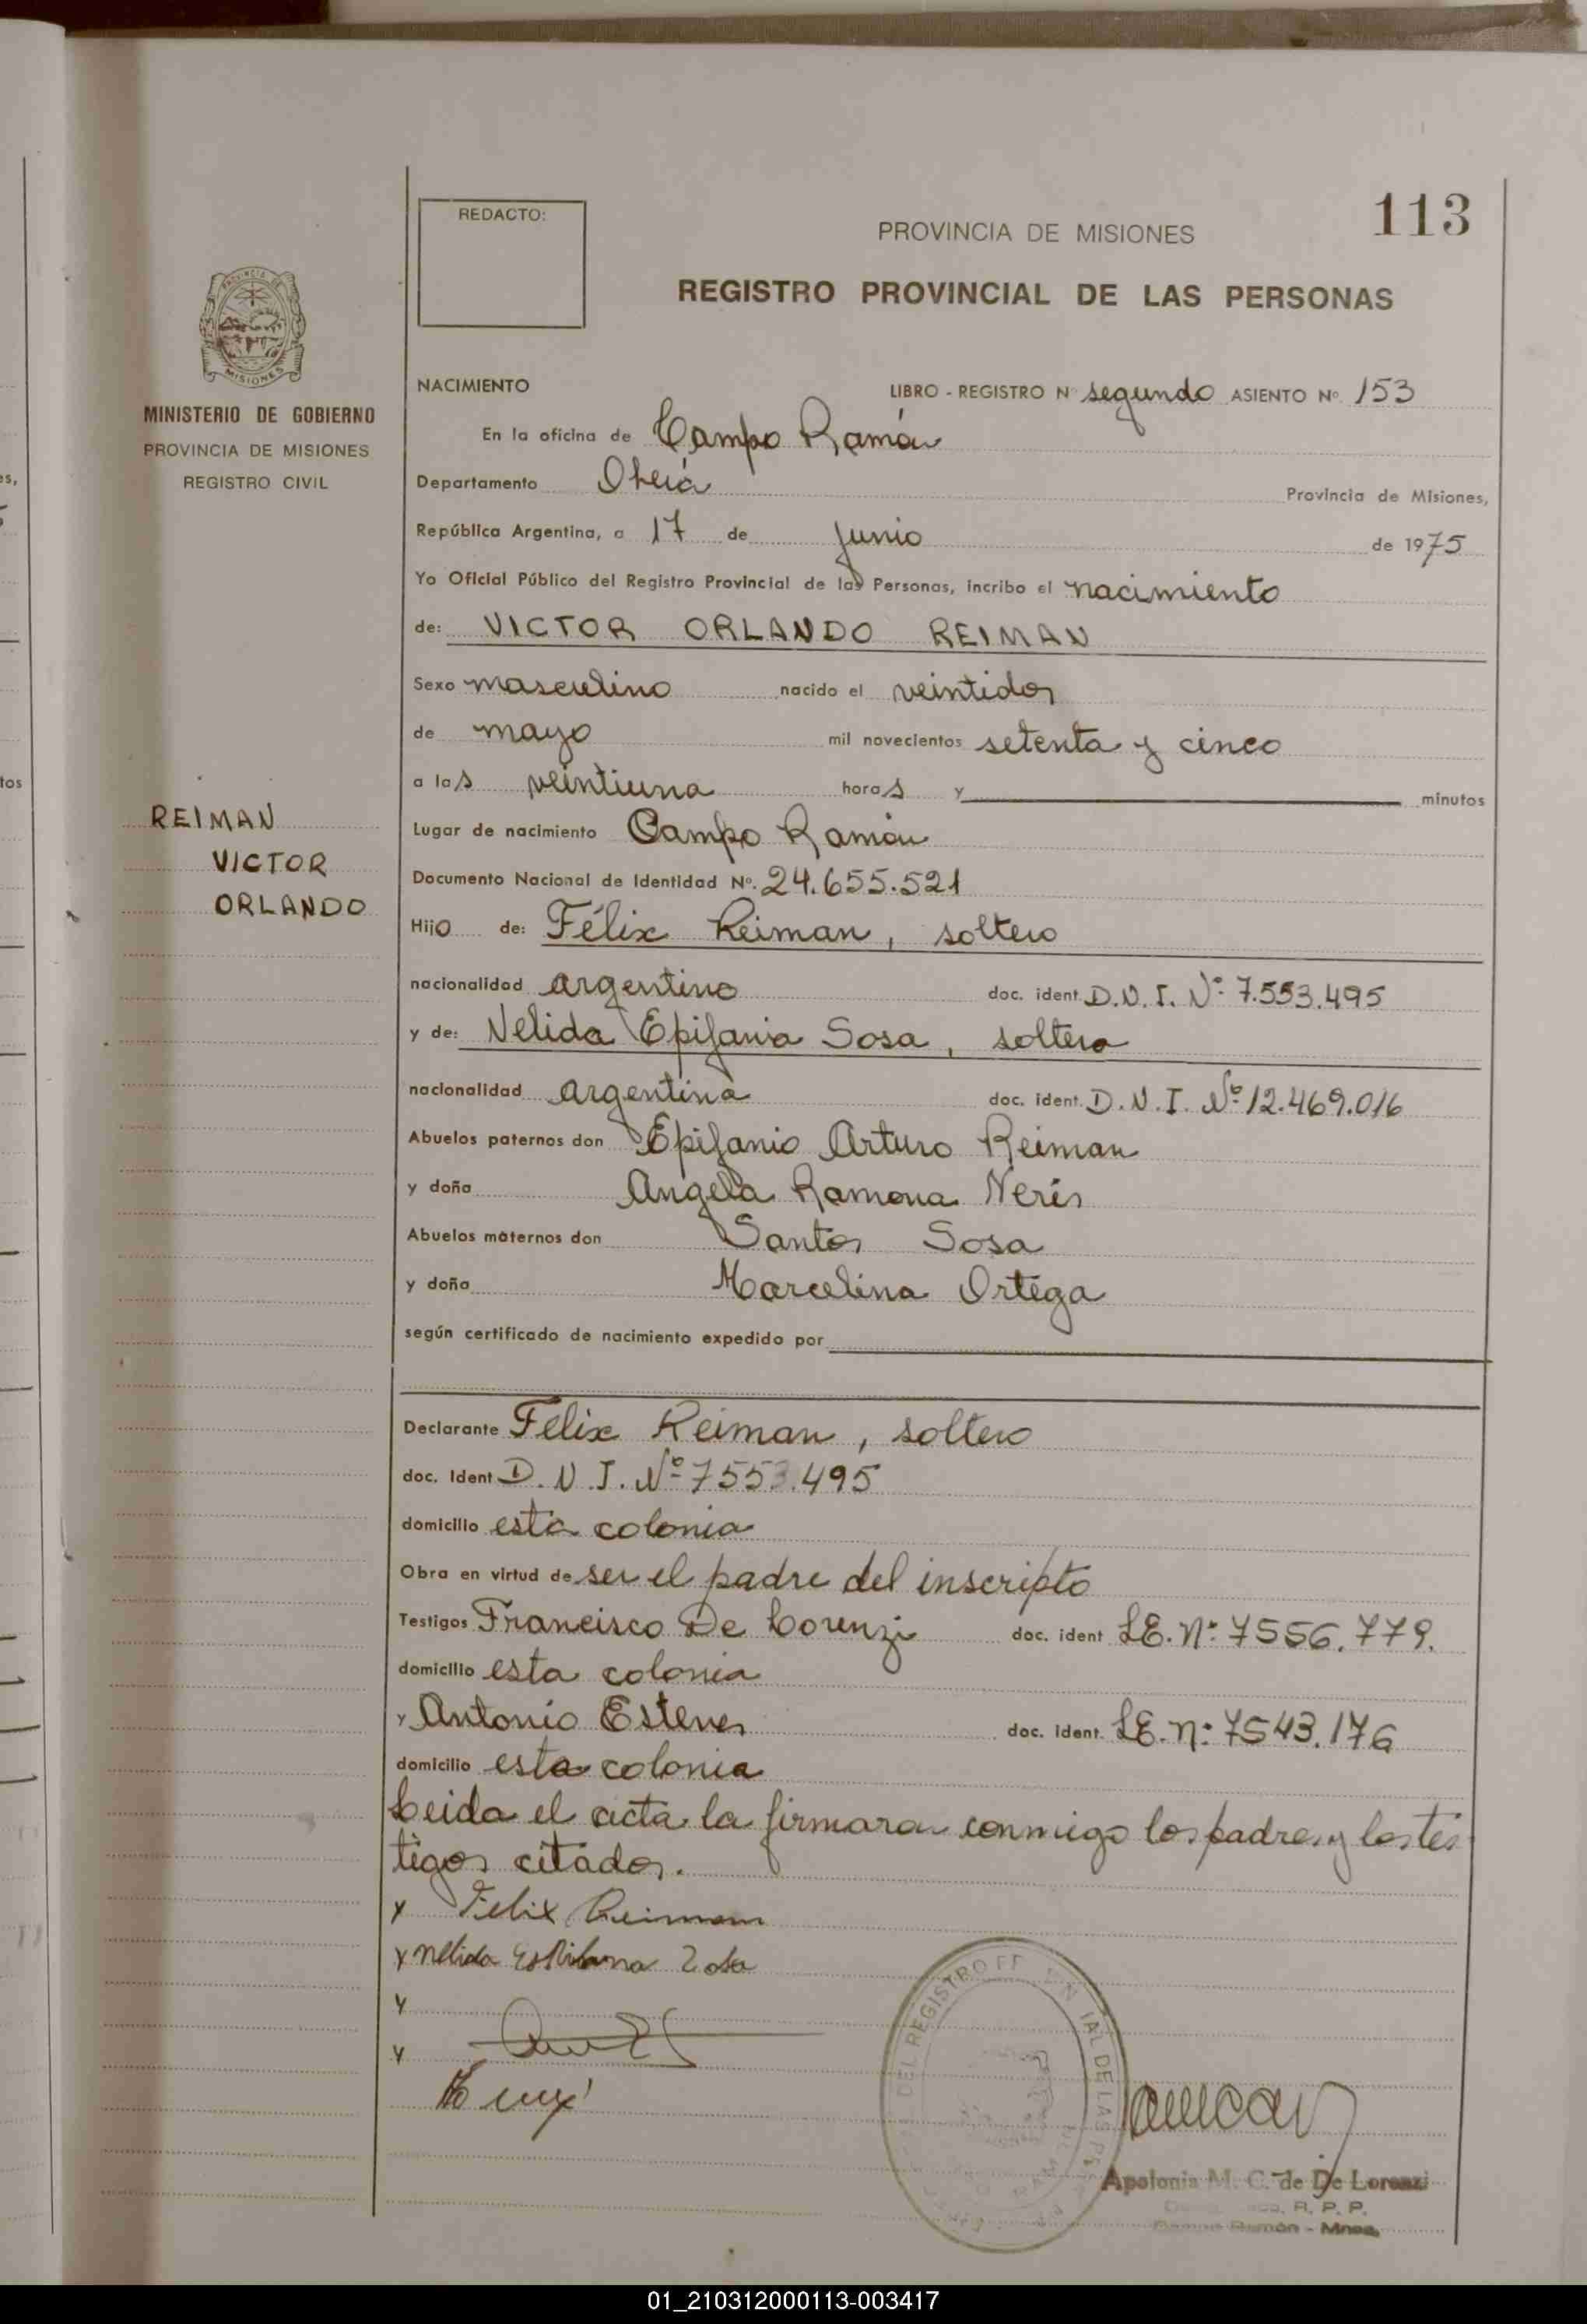 113
REDACTO:
PROVINCIA DE MISIONES
REGISTRO PROVINCIAL DE LAS PERSONAS
PROVINCIA DE
MISIONES
MINISTERIO DE GOBIERNO
PROVINCIA DE MISIONES
REGISTRO CIVIL
NACIMIENTO LIBRO - REGISTRO Nº segundo ASIENTO Nº. 153
En la oficina de Campo Ramón
Departamento Oberá Provincia de Misiones,
República Argentina, a 17 de junio de 1975
Yo Oficial Público del Registro Provincial de las Personas, incribo el nacimiento
de: VICTOR ORLANDO REIMAN
Sexo masculino nacido el veintidos
de mayo mil novecientos setenta y cinco
a las veintiuna horas y minutos
REIMAN
VICTOR
ORLANDO
Lugar de nacimiento Campo Ramón
Documento Nacional de Identidad Nº. 24.655.521
Hijo de: Félix Reiman, soltero
nacionalidad argentino doc. ident. D.N.I. Nº 7.553.495
y de: Nelida Epifania Sosa, soltera
nacionalidad argentina doc. ident. D.N.I. Nº 12.469.016
Abuelos paternos don Epifanio Arturo Reiman
y doña Angela Ramona Neris
Abuelos maternos don Santos Sosa
y doña Marcelina Ortega
según certificado de nacimiento expedido por
Declarante Felix Reiman, soltero
doc. Ident D.N.I. Nº 7553.495
domicilio esta colonia
Obra en virtud de ser el padre del inscripto
Testigos Francisco De Lorenzi doc. ident LE. Nº 7556.779.
domicilio esta colonia
y Antonio Esteves doc. ident. LE. nº 7543.176
domicilio esta colonia
Leida el acta la firmaran conmigo los padres y los tes
tigos citados.
x Felix Reimann
x Nelida
DEL REGISTRO DE LAS
Apolonia M. C. de De Lorenzi
R. P. P.
Campo Ramón - Mnes.
01_210312000113-003417